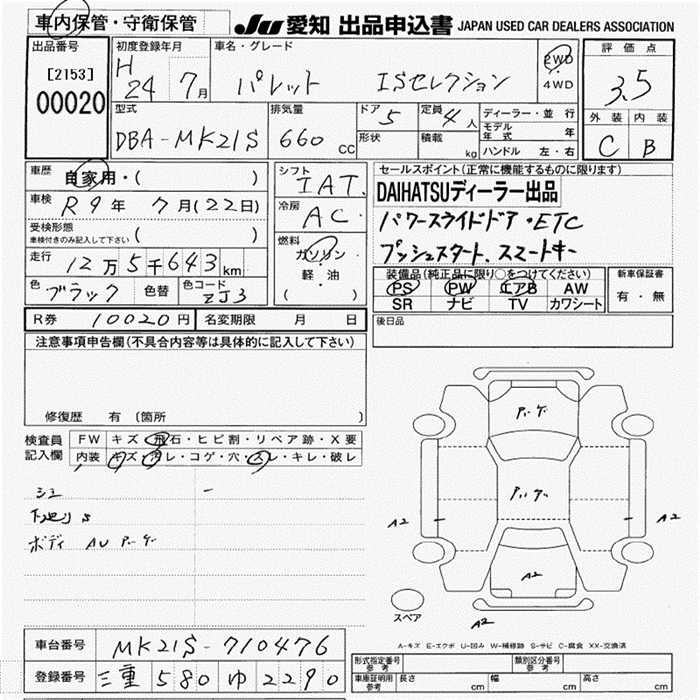 車内保管・守衛保管
JU 愛知 出品申込書 JAPAN USED CAR DEALERS ASSOCIATION
出品番号
[2153]
00020
初度登録年月
H
24 7月
車名・グレード
パレット ISセレクション
2WD
・
4WD
評価点
3.5
外装 内装
C B
型式
DBA-MK21S
排気量
660 CC
ドア 5
形状
定員 4人
積載 kg
ディーラー・並行
モデル年式 年
ハンドル 左・右
車歴 自家用・( )
車検 R9年 7月(22日)
受検形態
車検付きのみ記入して下さい ( )
走行 12万5千643km
色 ブラック 色替 色コード ZJ3
シフト IAT.
冷房 AC
燃料 ガソリン
・
軽・油
( )
セールスポイント(正常に機能するものに限ります)
DAIHATSUディーラー出品
パワースライドドア・ETC
プッシュスタート、スマートキー
装備品(純正品に限り○をつけてください)
PS PW エアB AW
SR ナビ TV カワシート
新車保証書
有・無
R券 10020円 名変期限 月 日
後日品
注意事項申告欄(不具合内容等は具体的に記入して下さい)
修復歴 有 〔箇所 〕
検査員記入欄
FW キズ・飛石・ヒビ割・リペア跡・X要
内装 キズ・汚レ・コゲ・穴・スレ・キレ・破レ
シミ −
下廻り S
ボディ AU P-ゲ
P-ゲ
P-ゲ
A2
A2
A2
A2
スペア
A-キズ E-エクボ U-凹み W-補修跡 S-サビ C-腐食 XX-交換済
車台番号 MK21S-710476
登録番号 三重 580 ゆ 2290
形式指定番号 参考
類別区分番号 参考
車庫証明用 参考 長さ cm 幅 cm 高さ cm